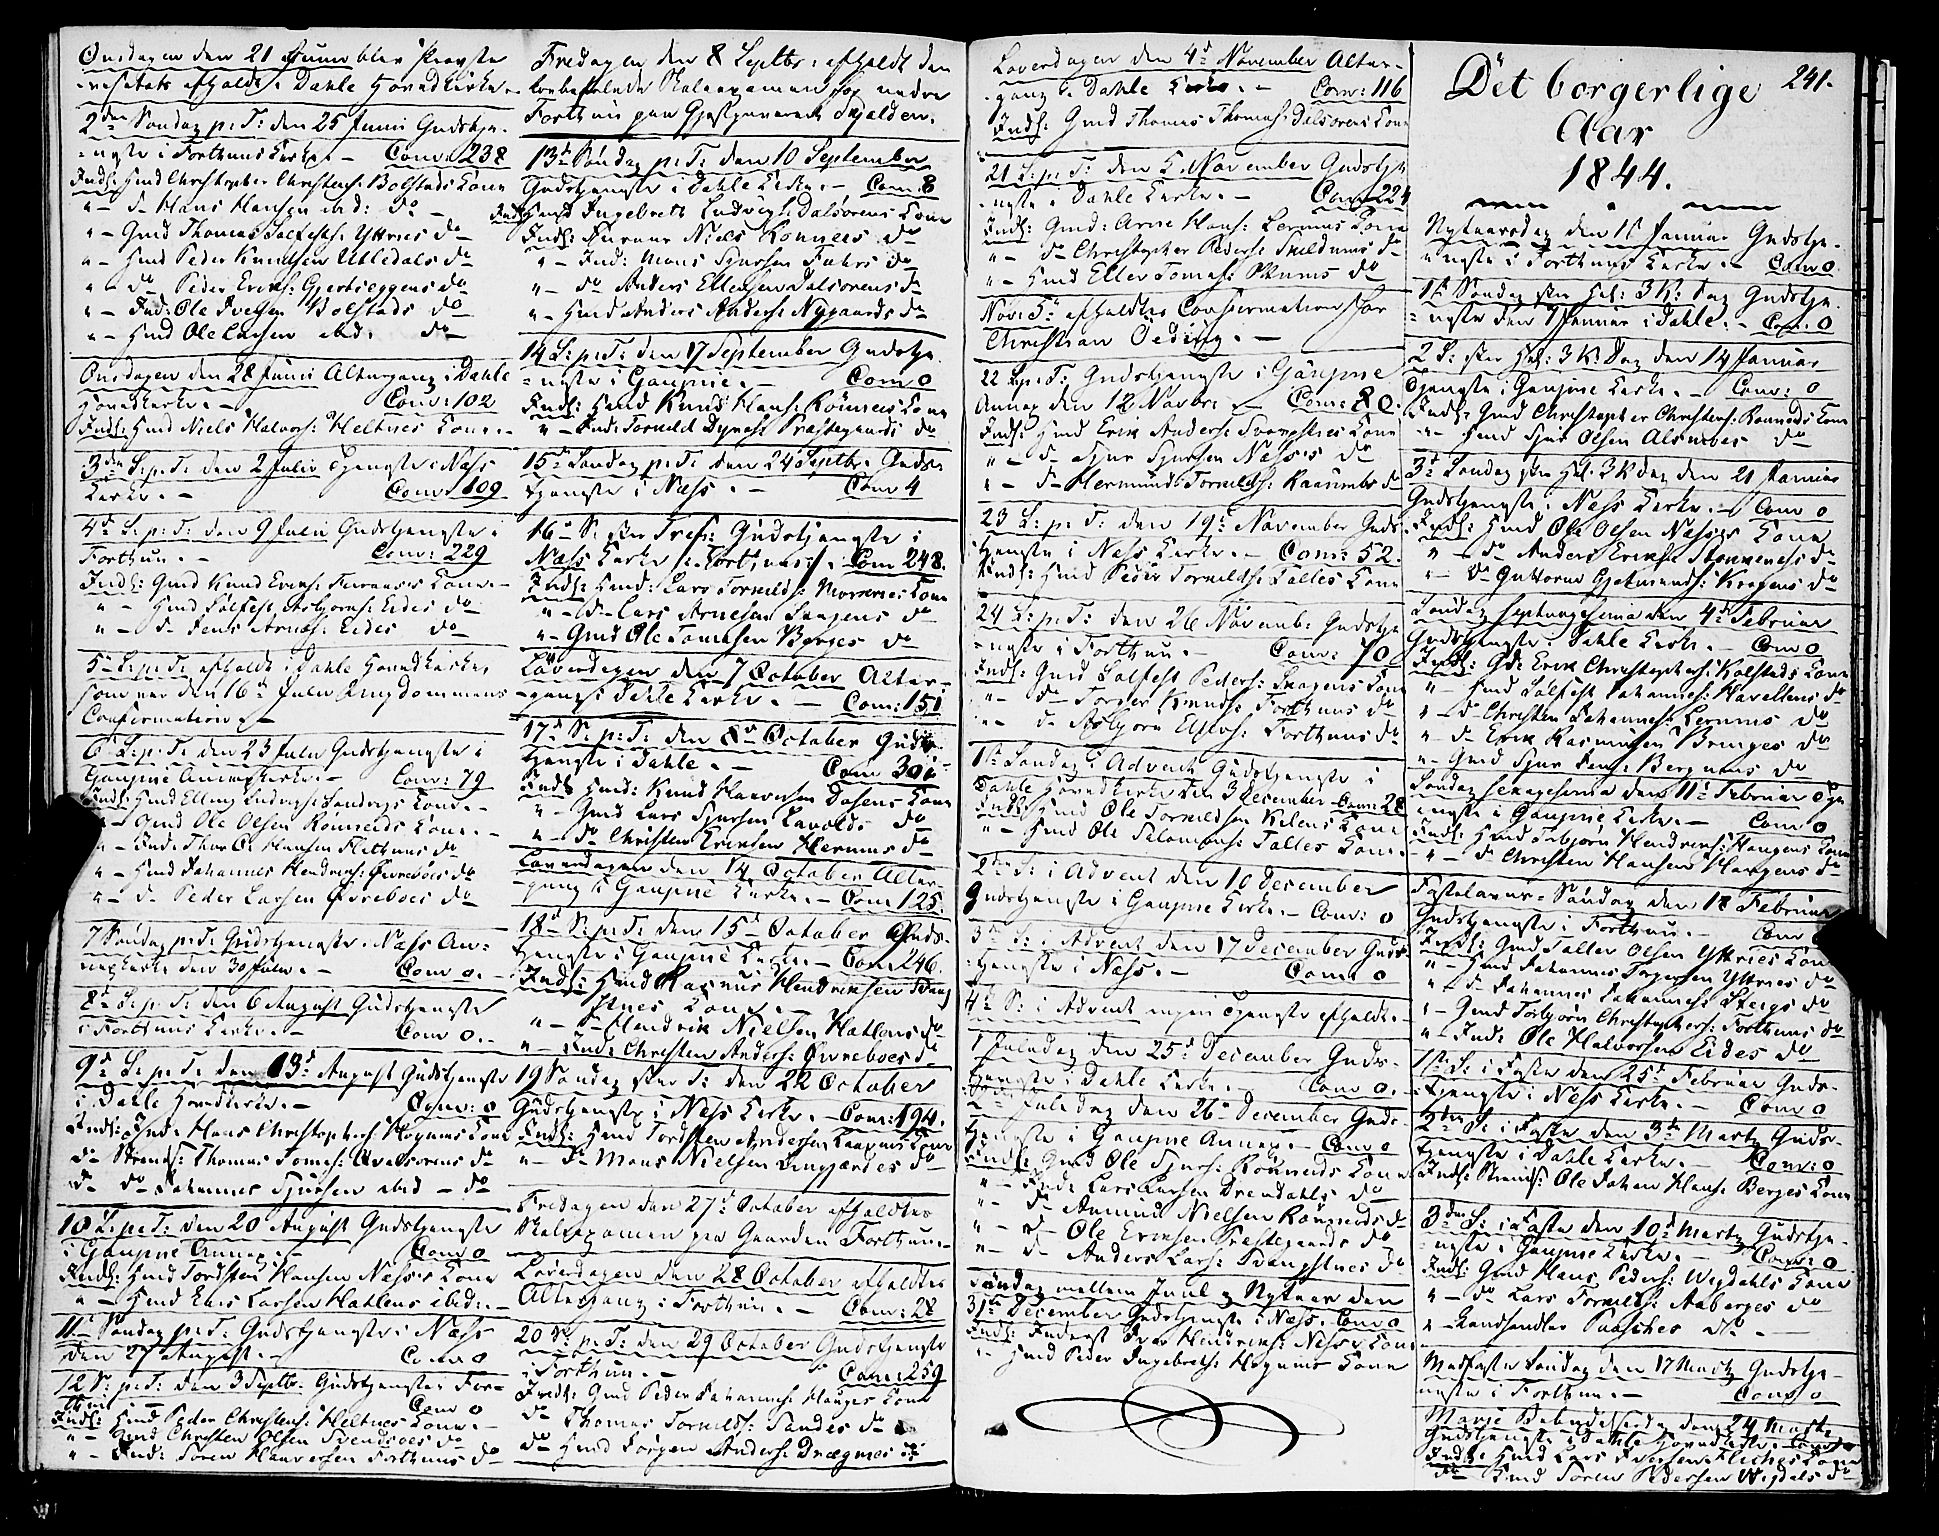 Onsdagen den 21 Junii blev Provste
visitats afholdt i Dahle Hovedkirke.
2den Søndag p: T: den 25 Junii Gudstje-
neste i Forthuns Kirke. - Com: 238
Indl: Hmd Christopher Christens: Bolstads Kone
" - d- Hans Hansen ibd: do
" - Gmd Thomas Salfests: Yttries do
" - Hmd Peder Knudsen Uttedals do
" - do Peder Eriks: Gjerbreggens do
" - Ind: Ole Iversen Bolstads do
" - Hmd Ole Larsen ibd: do
Onsdagen den 28 Junii Altergang i Dahle
Hovedkirke. - Com: 102
Indl: Hmd Niels Halvors: Heltnes Kone.
3die S: p: T: den 2 Julii Tjeneste i Næss
Kirke. - Com: 109
4de S: p: T: den 9 Julii Gudstjeneste i
Forthun. - Com: 229
Indl: Gmd Knud Eriks: Kone
" - Hmd Salfest Asbjørns: Eides do
" - d- Jens Arnes: Eides do
5te S: p: T: afholdt i Dahle Hovedkirke,
som var den 16de Julii Ungdommens
Confirmation.
6te S: p: T: den 23 Julii Gudstjeneste i
Gaupne Annexkirke. - Com: 79
Indl: Hmd Elling Ludvigs: Kone
" - Gmd Ole Olsen Rønneids Kone
" - Ind: Thor O: Hansen do
" - Hmd Johannes Hendriks: Øvreboes do
" - d- Peder Larsen Øvreboes do
7 Søndag p: T: Gudstjeneste i Næss An-
nexkirke den 30 Julii. - Com: 0.
8de S: p: T: den 6 August Gudstjeneste
i Forthuns Kirke. - Com 0.
9de S: p: T: den 13de August Gudstjeneste
i Dahle Hovedkirke. - Com: 0
Indl: Ind: Hans Christophers: Kone
do Strands: Thomas Tomas: do
d- do Johannes Sjursen ibid - do
10 S: p: T: den 20 August Gudstjeneste
i Gaupne Annex. - Com 0
Indl: Hmd Tordsten Hansen Næsses Kone
" - Hmd Lars Larsen Hatlens ibid:
11te Søndag p: T: Gudstjeneste i Næss
den 27 August. - Com 0
12 S: p: T: den 3 Septbr. Gudstjeneste i For-
thun Com 0
Indl: Hmd Peder Christens: Heltnes Kone.
" - Gmd Christen Olsen do
" - Ind: Søren Halvorsen Forthuns do
Fredagen den 8 Septbr: afholdt den
Skoleexamen for nedre
Forthun paa Gjestgiverie Skjolden.
13de Søndag p: T: den 10 September
Gudstjeneste i Dahle Kirke. - Com: 8
Indl: Hmd Ingebreth Ludvigs: Dalsørens Kone
Indl: Niels Rønneis do
" - Ind: Mons Sjursen do
" - do Anders Ellingsen Dalsørens do
" - Hmd Anders Anders: Nygaards do
14 S: p: T: den 17 September Gudstje-
neste i Gaupne. - Com 0
Indl: Hmd Knud Hans: Rønneis Kone
" - Ind: Torkild Præstegaards do
15de Søndag p: T: den 24 Septbr. Guds-
tjeneste i Næss. - Com 4
16de S: efter Tref: Gudstjeneste i
Næss Kirke /: Forthun :/ Com 248.
Indl: Hmd: Lars Torkilds: Kone
" - d- Lars Arnesen do
" - Gmd Ole Tomesen Berges do
Løverdagen den 7 October Alter-
gang i Dahle Kirke. - Com: 151
17de S: p: T: den 8de October Guds-
tjeneste i Dahle. - Com 301
Indl: Hmd: Knud Halvorsen Dosens Kone
" - Gmd Lars Sjursen do
" - do Christen Eriksen do
Løverdagen den 14 October Alter-
gang i Gaupne Kirke. - Com 125.
18de S: p: T: den 15de October Guds-
tjeneste i Gaupne Kirke. - Com 246.
Indl: Hmd Rasmus Hendriksen
Kone
" - d- Hendrik Nielsen Hatlens do
" - Ind: Christen Anders: Øvreboes do
19 Søndag efter T: den 22 October
Gudstjeneste i Næss Kirke. - Com: 194.
Indl: Hmd Tordsten Andersen Kone
" - do Mons Nielsen do
Fredagen den 27de October afholdtes
Skoleexamen paa Gaarden Forthun.
Løverdagen den 28 October afholdtes
Altergang i Forthun. - Com: 28
20 S: p: T: den 29 October Gudstjeneste
i Forthun. - Com: 259
Indl: Gmd Peder Johannes: Hauges Kone
do Thomas Torkilds: Sandes do
do Hmd Jørgen Anders: Drægnies do
Løverdagen den 4de November Alter-
gang i Dahle Kirke. - Com: 116
Indl: Gmd Thomas Thomas: Dalsørens Kone
21 S: p: T: den 5 November Gudstje-
neste i Dahle Kirke. - Com: 224
Indl: Gmd: Arne Hans: Lerums Kone
" - d- Christopher Peders: do
" - Hmd Eller Tomas: do
Novr: 7de afholdtes Confirmation for
Christian Oeding. -
22 S: p: T: Gudstjeneste i Gaupne
Annex den 12 Novbr: - Com: 80
Indl: Hmd Erik Anders: Kone
" - d- Sjur Sjursen Næsses do
" - d- Hermund Torkilds: do
23 S: p: T: den 19de November Guds-
tjeneste i Næss Kirke. - Com: 52.
Indl: Hmd Peder Torkilds: Talles Kone
24 S: p: T: den 26 Novemb: Gudstje-
neste i Forthun. - Com: 70
Indl: Gmd Salfest Peders: Kone
" - do Torger Knuds: Forthuns do
" - d- Asbjørn Forthuns do
1ste Søndag i Advent Gudstjeneste i
Dahle Hovedkirke den 3 December Com: 28
Indl: Hmd Ole Torkildsen Kilens Kone
" - Hmd Ole Salomons: Talles Kone
2den S: i Advent den 10 December
Gudstjeneste i Gaupne Kirke. - Com: 0
3die S: i Advent den 17 December Guds-
tjeneste i Næss. - Com: 0
4de S: i Advent ingen Tjeneste afholdt.
1 Juledag den 25de December Guds-
tjeneste i Dahle Kirke. - Com 0.
2den Juledag den 26de December Guds-
tjeneste i Gaupne Annex. - Com 0
Indl: Gmd Ole Sjurs: Rønneids Kone
" - Ind: Lars Larsen Drendahls do
" - d- Anund Nielsen Rønneids do
" - d- Ole Eriksen Præstegaards do
" - d- Anders Lars: do
Søndag mellem Juul og Nytaar den
31te December Gudstjeneste i Næss. Com 0
Indl: Inderst Iver Hendriks: Næsses Kone
" - Hmd Peder Ingebreths: Kone
241.
Det borgerlige
Aar
1844.
Nytaarsdag den 1ste Januar Gudstje-
neste i Forthuns Kirke. - Com 0.
1ste Søndag efter Hel: 3 K: Dag Gudstje-
neste den 7 Januar i Dahle. - Com: 0
2 S: efter Hel: 3 K: Dag den 14 Januar
Tjeneste i Gaupne Kirke. - Com: 0
Indl: Gmd Christopher Christens: Kone
" - Hmd Sjur Olsen Alsmes do
3de Søndag efter Hel: 3 K Dag den 21 Januar
Gudstjeneste i Næss Kirke. - Com 0
Indl: Hmd Ole Olsen Næsses Kone
" - do Anders Eriks: do
" - do Guttorm Gjermunds: Krogens do
Søndag Septuagesima den 4de Februar
Gudstjeneste i Dahle Kirke. - Com 0
Indl: Gd: Erik Christophers: Bolstads Kone
" - Hmd Salfest Johannes: do
" - d- Christen Johannes: Lerums do
" - d- Erik Rasmusen do
" - Gmd Sjur Jens: Bergums do
Søndag Sexagesima den 11te Februar Tje-
neste i Gaupne Kirke. - Com 0
Indl: Hmd Torbjørn Hendriks: Haugens Kone
" - d- Christen Hansen Haugens do
Fastelavns-Søndag den 18 Februar
Gudstjeneste i Forthun. - Com 0
Indl: Gmd Saller Olsen Yttries Kone
" - Hmd Johannes Yttries do
" - d- Johannes Johannes: Bergs do
" - Gmd Torbjørn Christophers: Forthuns do
" - Ind: Ole Halvorsen Eides do
1ste S: i Faste den 25de Februar Guds-
tjeneste i Næss Kirke. - Com 0
2den S: i Faste den 3de Marts Guds-
tjeneste i Dahle Kirke. - Com: 0
Indl: Strands: Ole Johan Hans: Berges Kone
3die S: i Faste den 10de Marts Gudstje-
neste i Gaupne Kirke. - Com: 0
Indl: Gmd Hans Peders: Wigdahls Kone
" - do Lars Torkilds: Aaberges do
" - Landhandler Paasches do
Midfaste Søndag den 17 Marts Gudstje-
neste i Forthun. - Com 0
Mariæ Bebudelsesdag den 24 Marts
Gudstjeneste i Dahle Hovedkirke. Com 0
Indl: Hmd Lars Iversen Kone
do Hmd Søren Pedersen Wigdals do